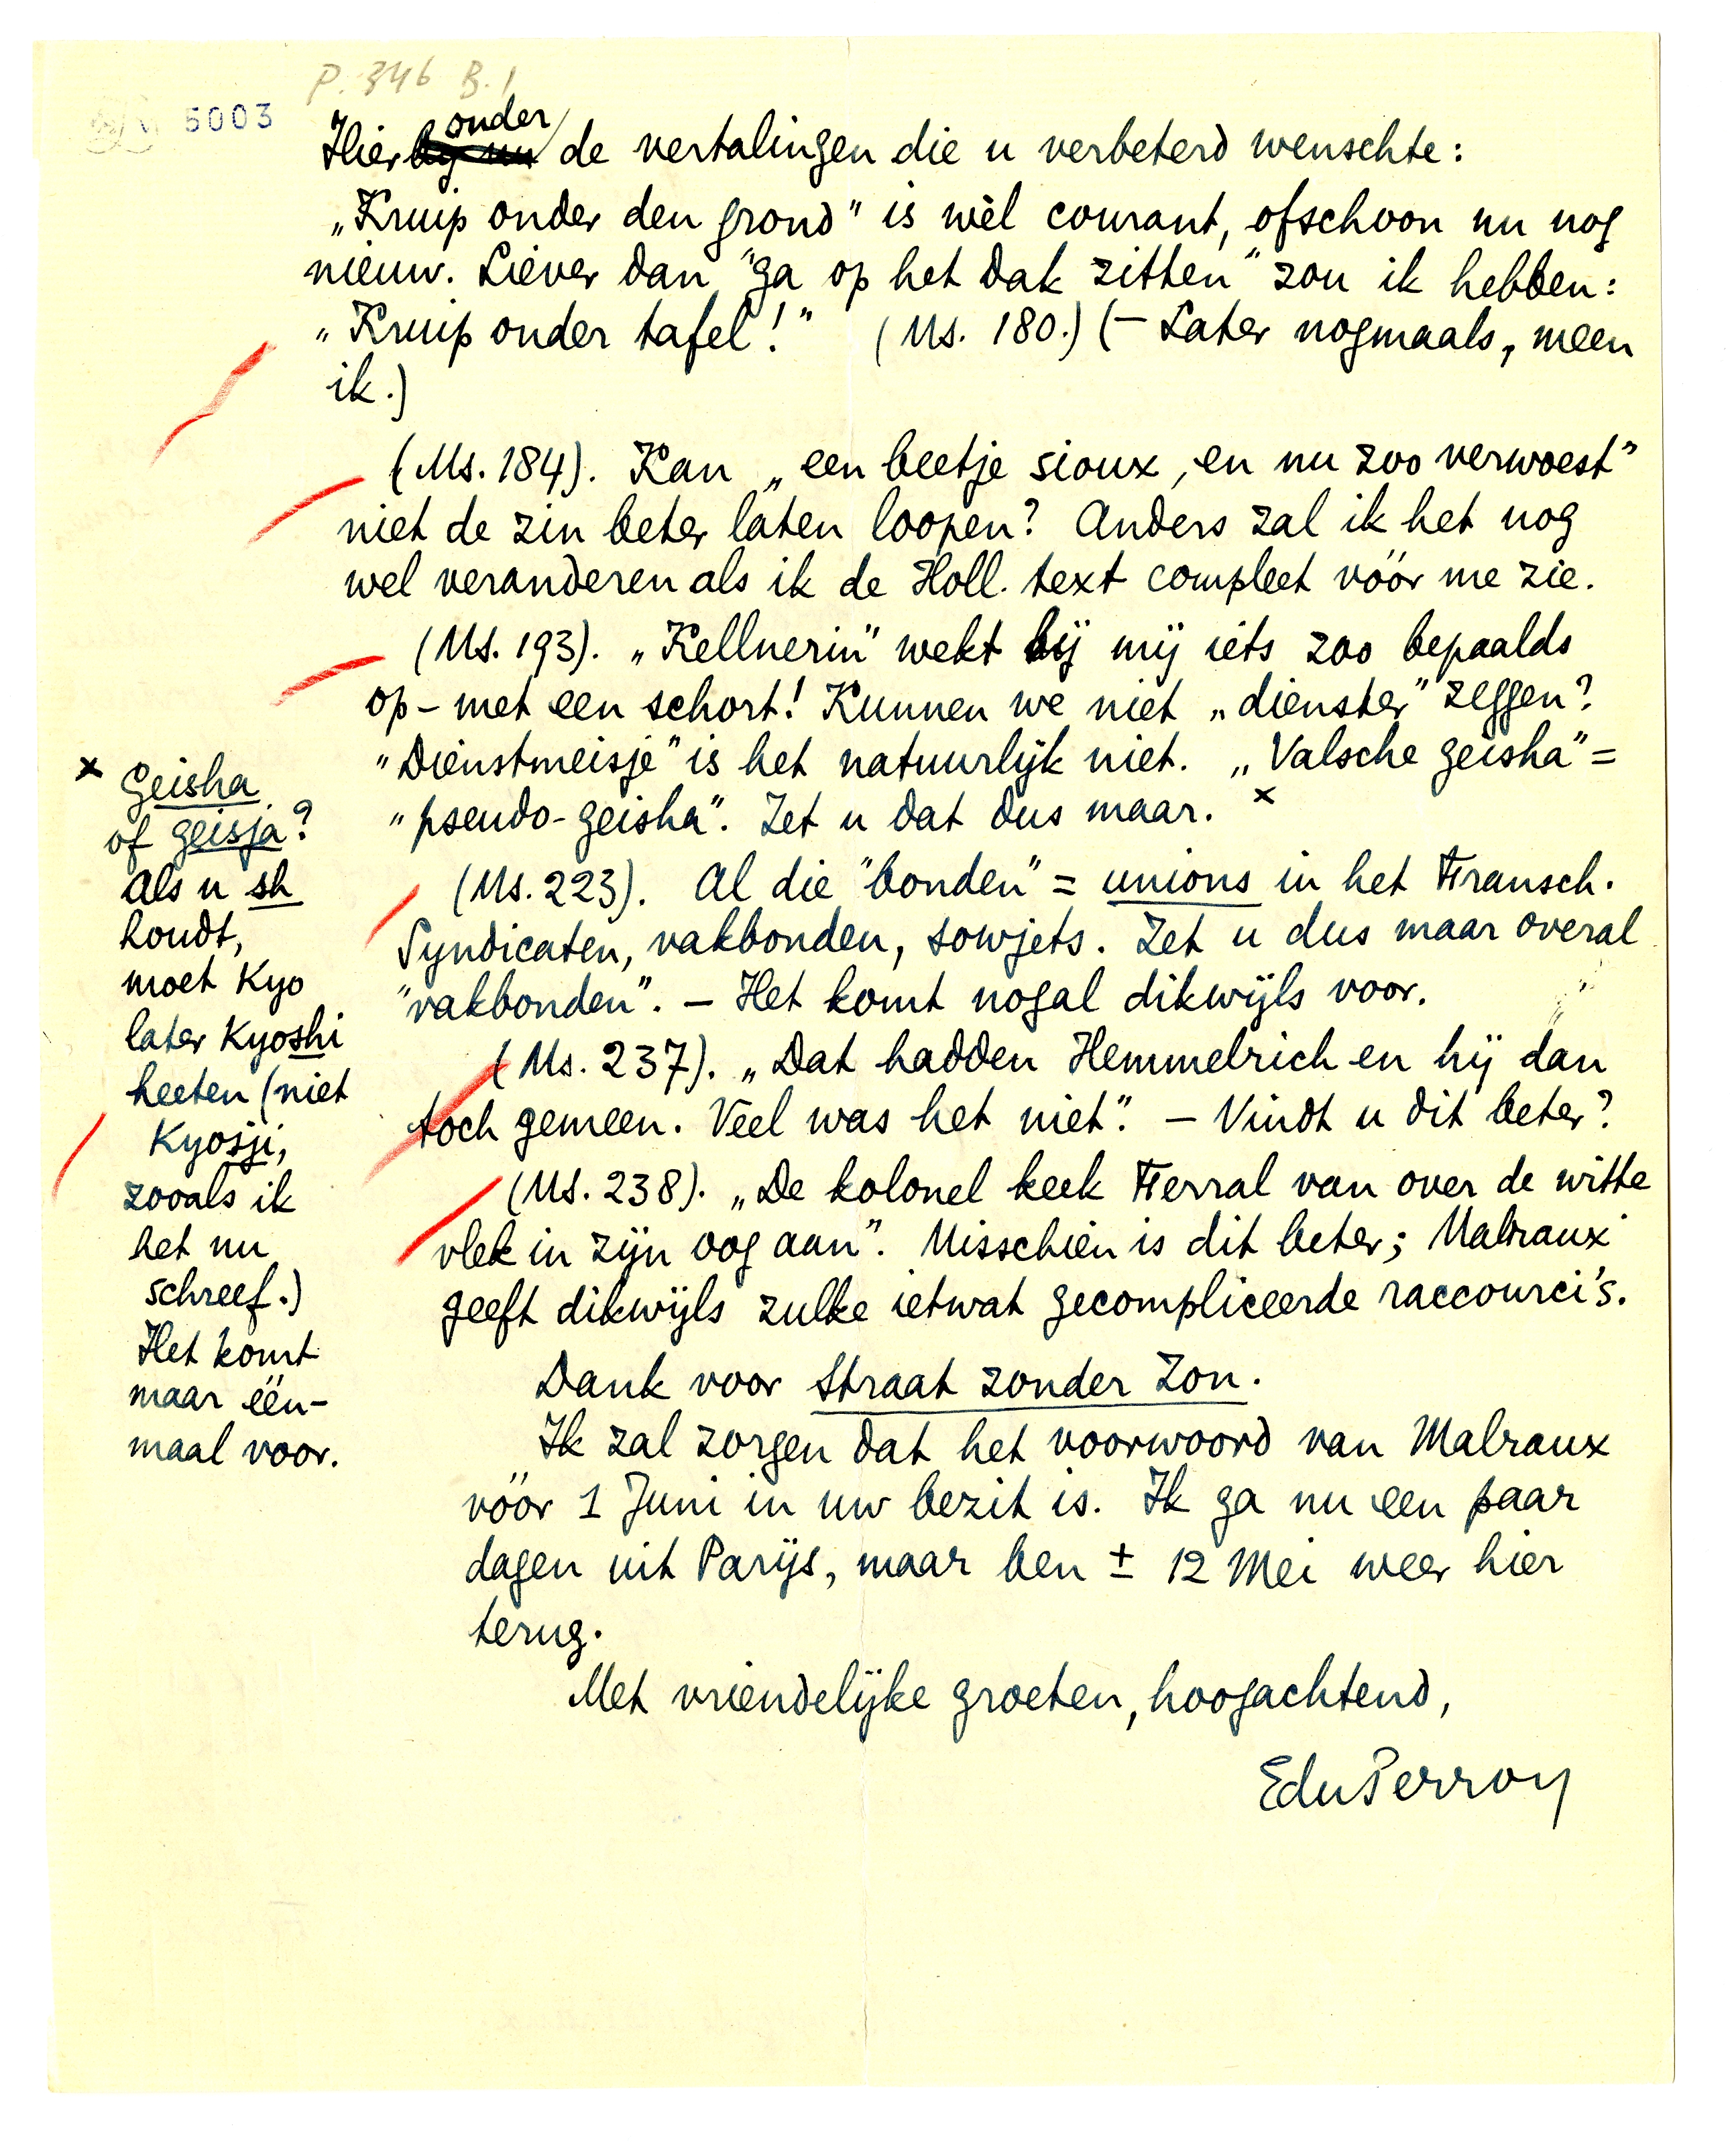 P. 346 B. 1
5003
Hieronder de vertalingen die u verbeterd wenschte:
„Kruip onder den grond" is wèl courant, ofschoon nu nog
nieuw. Liever dan "ga op het dak zitten" zou ik hebben:
„Kruip onder tafel!" (Ms. 180.) (— Later nogmaals, meen
ik.)
(Ms. 184). Kan „een beetje sioux, en nu zoo verwoest"
niet de zin beter laten loopen? Anders zal ik het nog
wel veranderen als ik de Holl. text compleet vóór me zie.
(Ms. 193). „Kellnerin" wekt bij mij iets zoo bepaalds
op – met een schort! Kunnen we niet „dienster" zeggen?
"Dienstmeisje" is het natuurlijk niet. „Valsche geisha" =
"pseudo-geisha". Zet u dat dus maar. x
(Ms. 223). Al die "bonden" = unions in het Fransch.
Syndicaten, vakbonden, sowjets. Zet u dus maar overal
"vakbonden". — Het komt nogal dikwijls voor.
(Ms. 237). „Dat hadden Hemmelrich en hij dan
toch gemeen. Veel was het niet". — Vindt u dit beter?
(Ms. 238). „De kolonel keek Ferral van over de witte
vlek in zijn oog aan". Misschien is dit beter; Malraux
geeft dikwijls zulke ietwat gecompliceerde raccourci's.
Dank voor Straat zonder Zon.
Ik zal zorgen dat het voorwoord van Malraux
vóór 1 Juni in uw bezit is. Ik ga nu een paar
dagen uit Parijs, maar ben ± 12 Mei weer hier
terug.
Met vriendelijke groeten, hoogachtend,
EduPerron
x Geisha
of geisja?
Als u sh
houdt,
moet Kyo
later Kyoshi
heeten (niet
Kyosji,
zooals ik
het nu
schreef.)
Het komt
maar één-
maal voor.